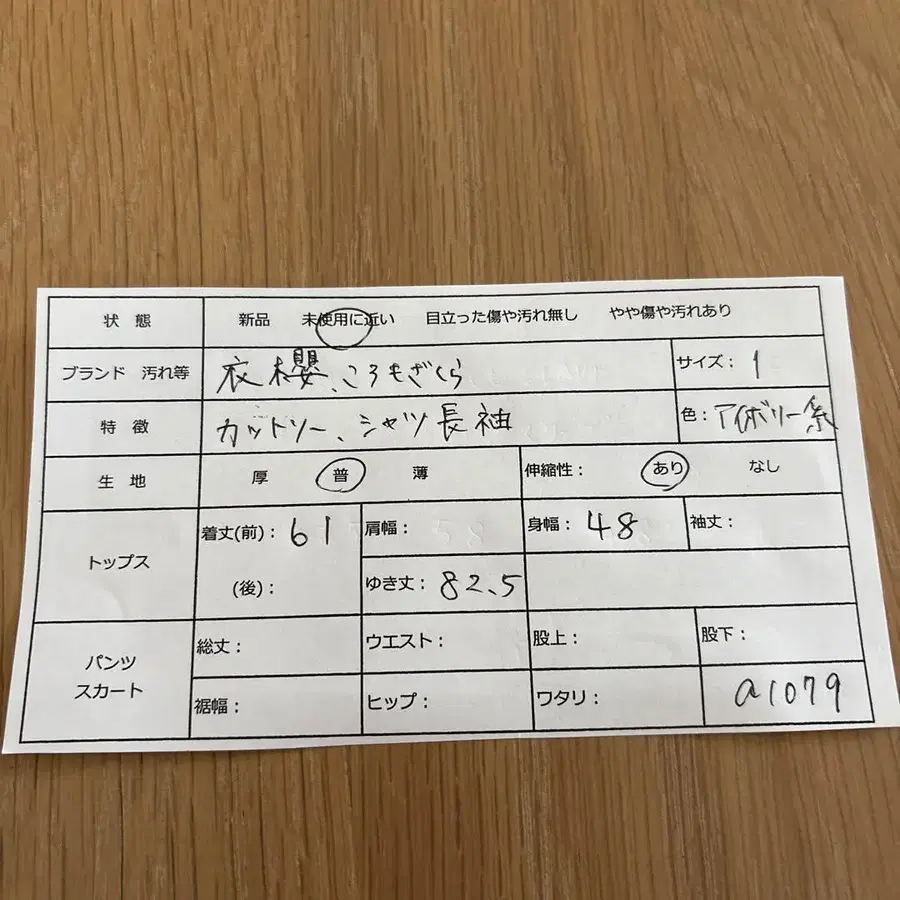 状 態 新品 未使用に近い 目立った傷や汚れ無し やや傷や汚れあり
ブランド 汚れ等 衣櫻、ころもざくら サイズ: 1
特 徴 カットソー、シャツ長袖 色: アイボリー系
生 地 厚 普 薄 伸縮性: あり なし
トップス 着丈(前): 61 肩幅: 身幅: 48 袖丈:
(後): ゆき丈: 82.5
パンツ スカート 総丈: ウエスト: 股上: 股下:
裾幅: ヒップ: ワタリ: a1079